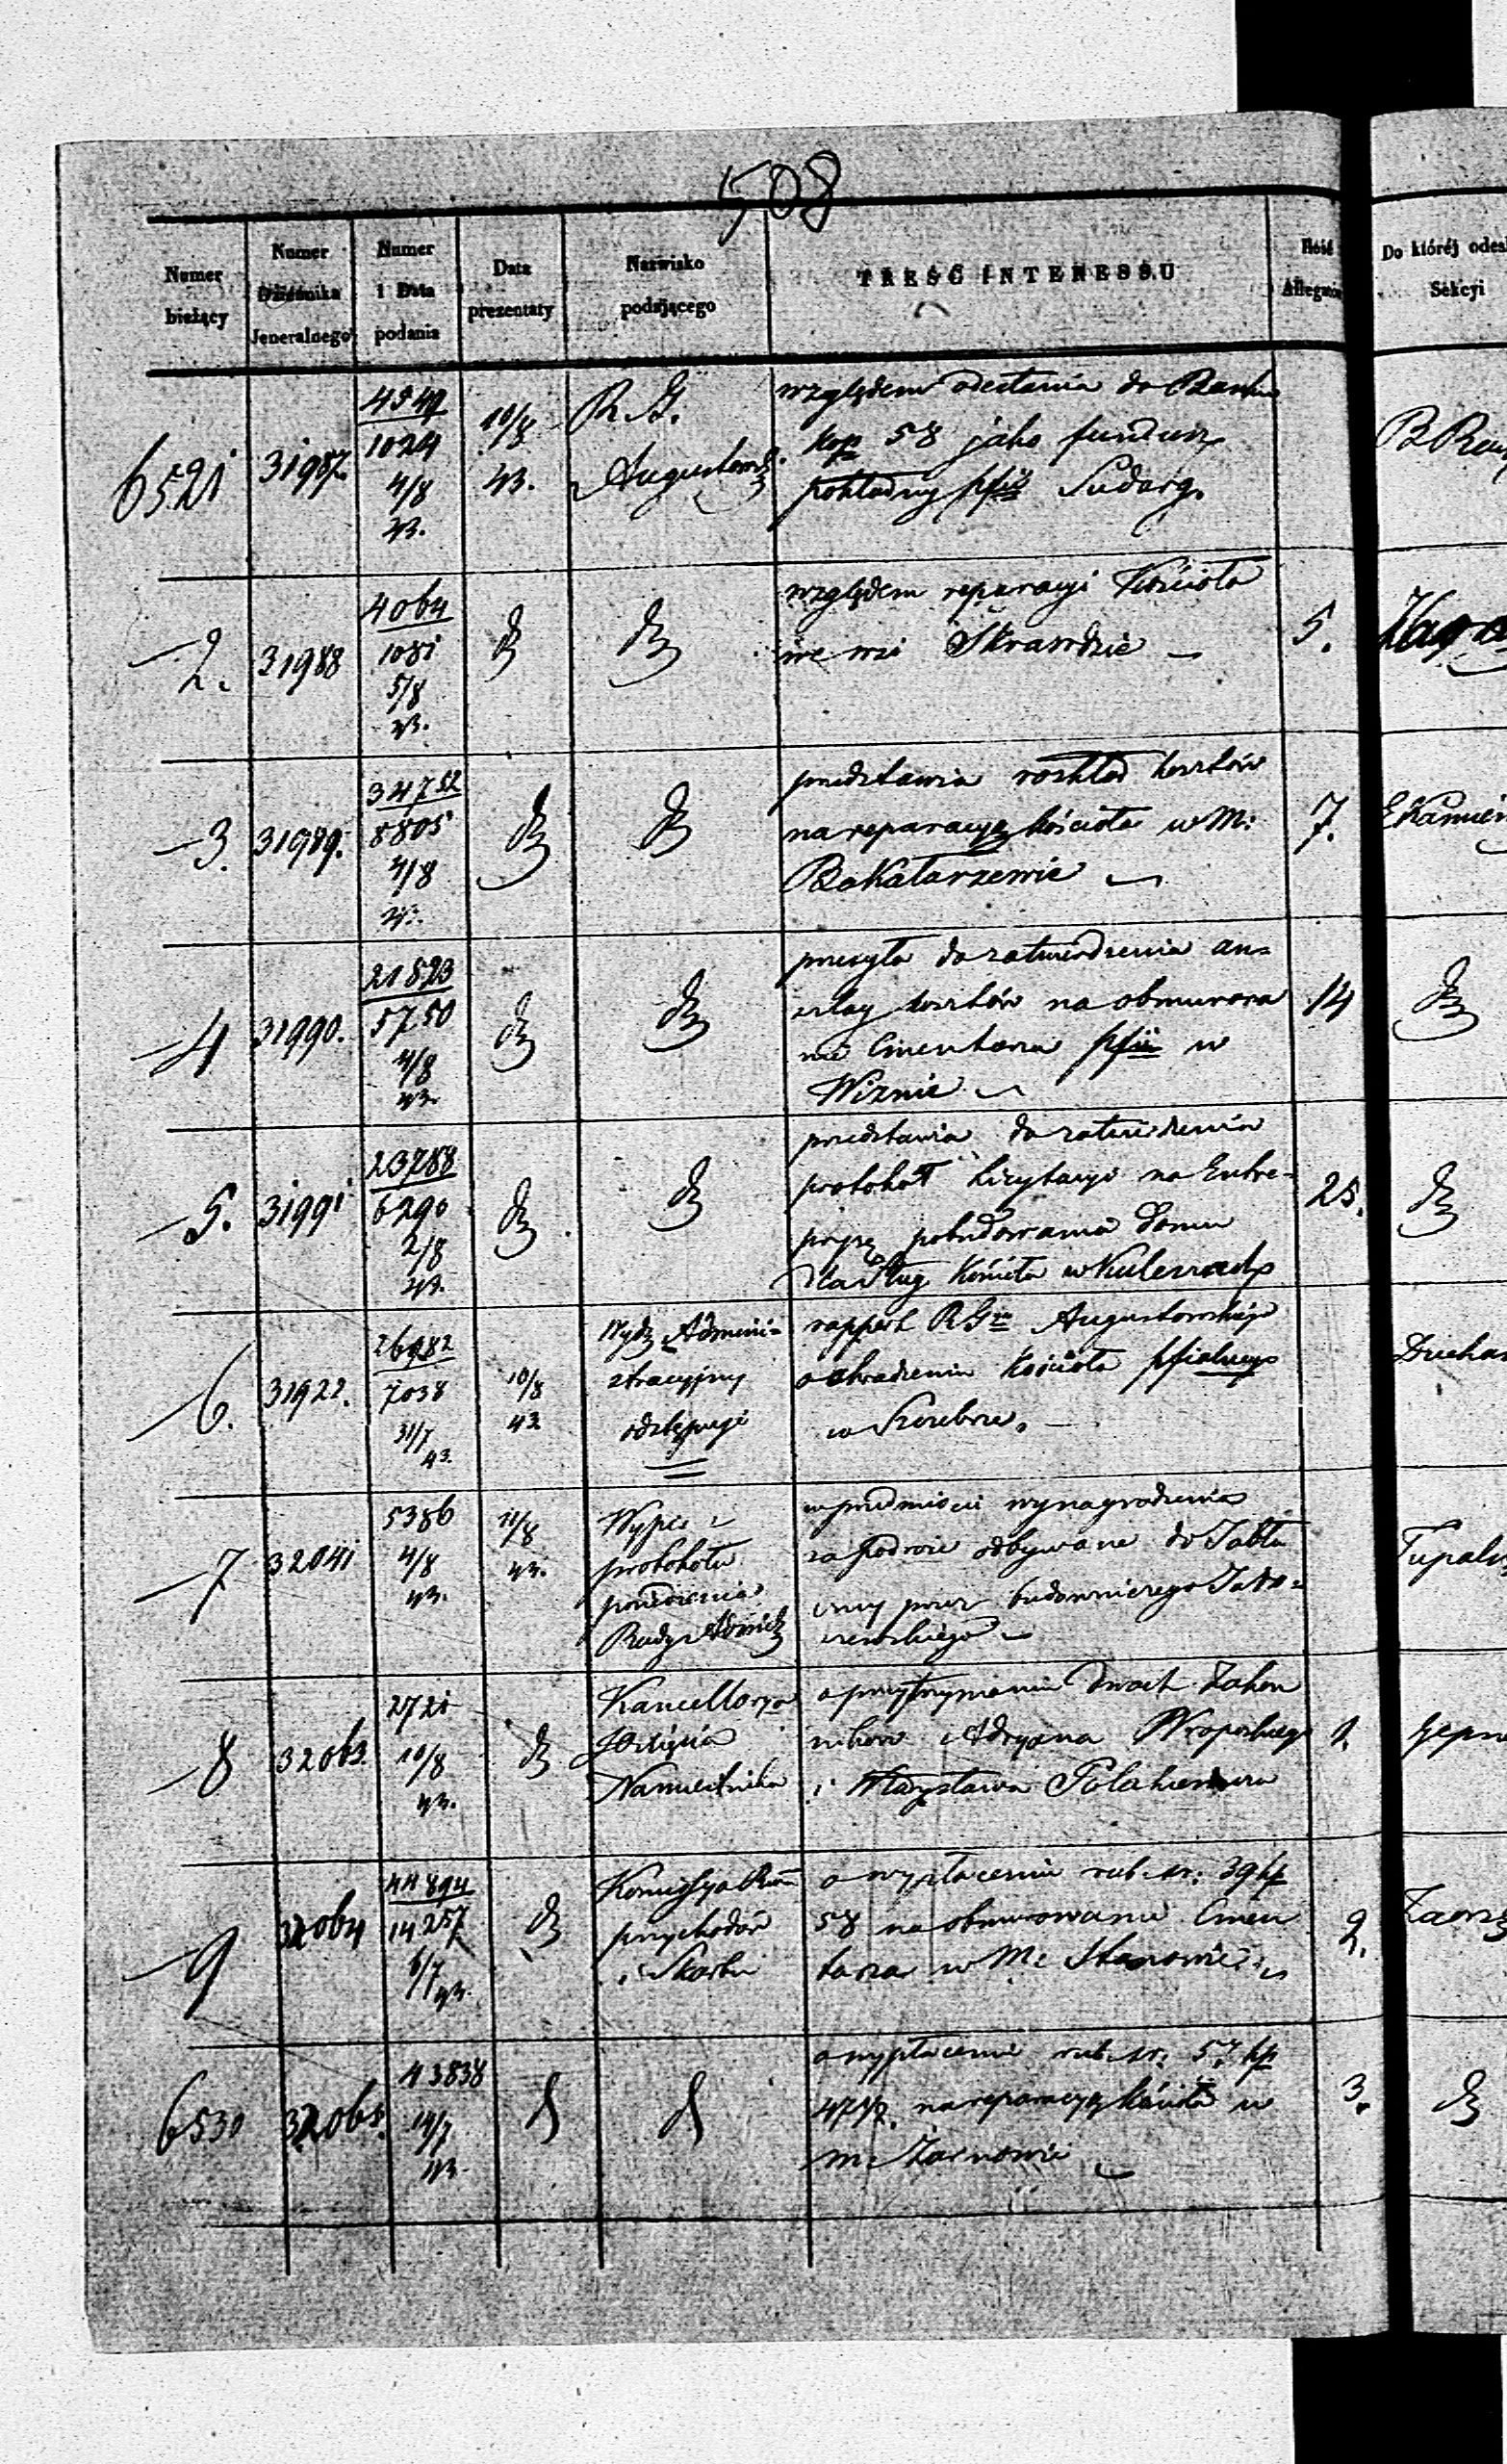 508
Numer bieżący
Numer Dziennika Jeneralnego
Numer i Data podania
Data prezentaty
Nazwisko podającego
TREŚĆ INTERESSU
Ilość
Do któréj odes
Sekcyi
6521
31987
4549
1024
4/8
43.
10/8
43.
R. G.
Augustows.
względem odesłania do Banku
kop 58 jako fundusz
pokładny pfii Sudarg.
2.
31988
4064
1081
5/8
43.
względem reparacyi Kościoła
we wsi Skrawdzie
5.
3.
31989.
34752
8805
4/8
przedstawia rozkład kosztów
na reparacyę kościoła w M:
Bakałarzewie
7.
4
31990.
21523
5750
4/8
43.
przesyła do zatwierdzenia an=
szlag kosztów na obmurowa
nie Cmentarza pfii w
Wiznie
14
5.
31991
23788
6290
2/8
43.
przedstawia do zatwierdzenia
protokół licytacyi na Entre-
pryzę pobudowania domu
dla sług Kościoła w
25.
6.
31922.
7038
31/7
43.
10/8
43
Wydz Admini=
stracyjny
odstępuje
rapport RGu Augustowskiego
o okradzeniu Kościoła pfialnego
w Szczebrze.
7
32041
5386
4/8
43.
11/8
43.
Wypis z
protokołu
posiedzenia
Rady
w przedmiocie wynagrodzenia
za podróże odbywane do Jabłe
czny przez budowniczego
8
32063
2721
10/8
43.
Kancellarya
Xięcia
Namiestnika
o przytrzymaniu dwoch Zakon
ników Adryana
i Władysława
1.
9
32064
44894
14257
6/7
43.
Komissya Rzą
przychodów
i Skarbu
o wypłaceniu rub. sr: 39 kp
58 na obmurowanie Cmen
tarza w M:
2.
6530
32065.
43838
14/7
43.
o wypłacenie rub. sr: 57 kp
47½. na reparacyę kościoła w
m: Żarnowie
3.